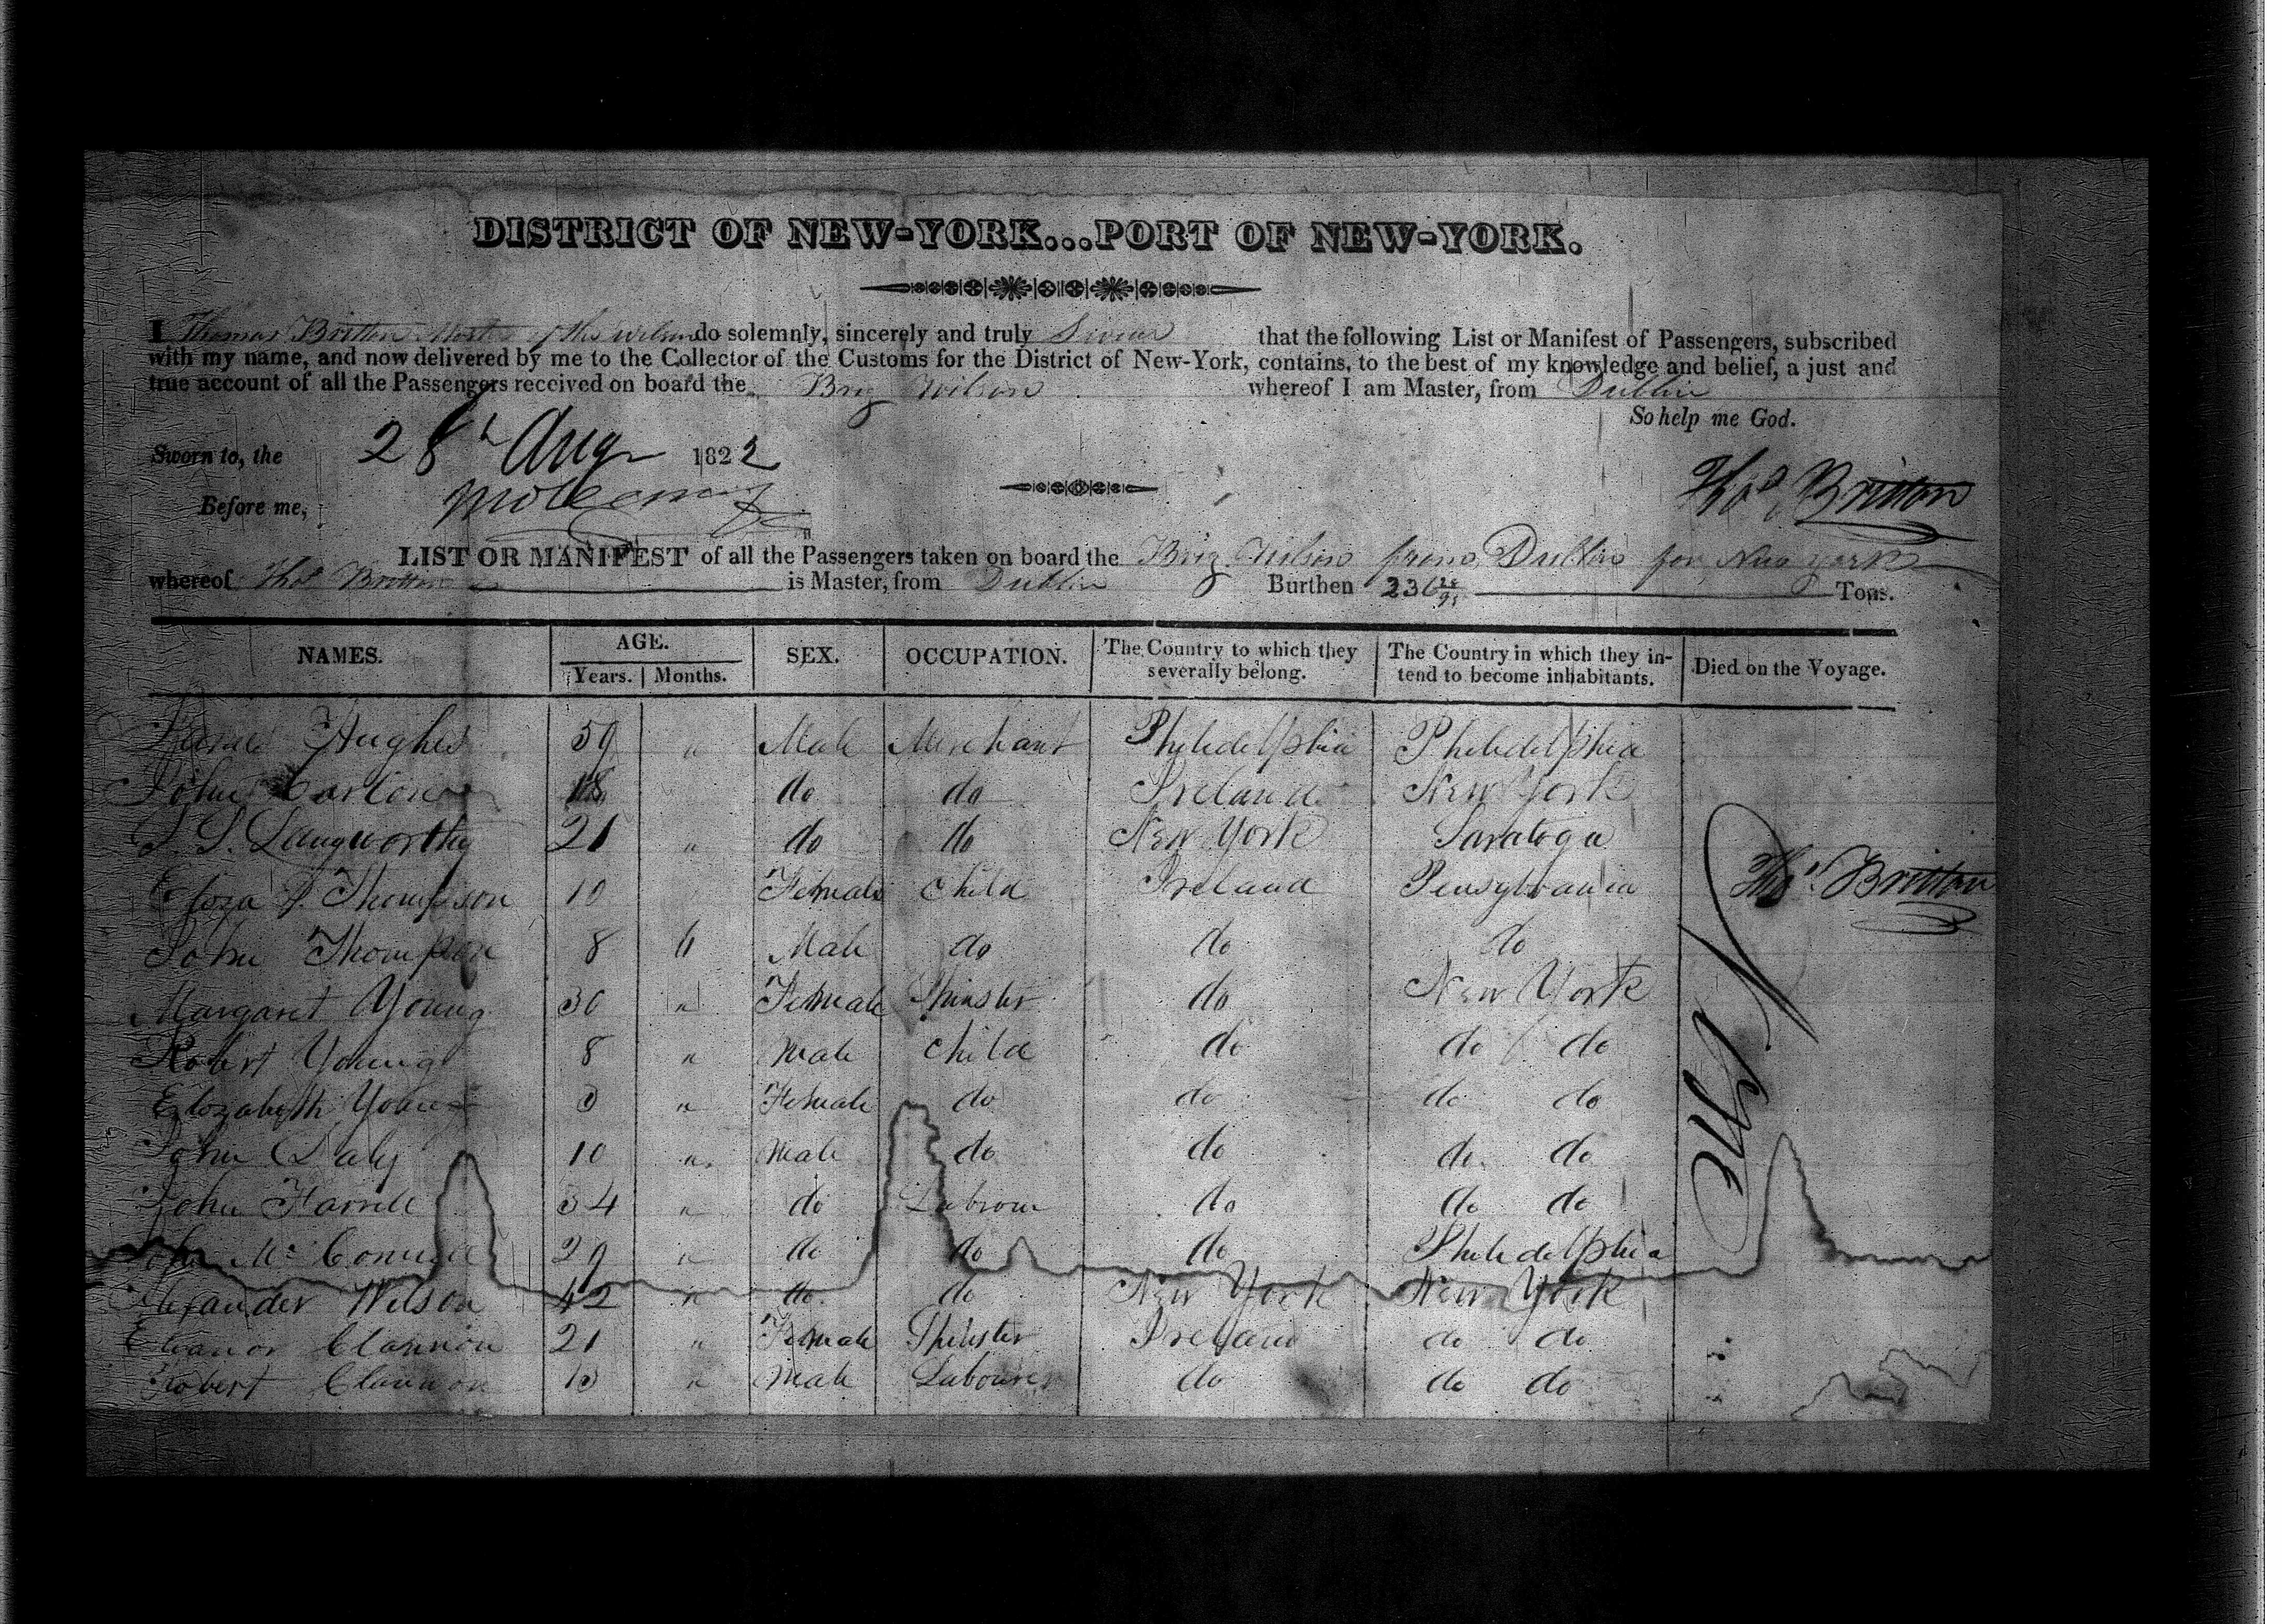 DISTRICT OF NEW-YORK...PORT OF NEW-YORK.
I Thomas Britton Master of the Wilson do solemnly, sincerely and truly Swear that the following List or Manifest of Passengers, subscribed
with my name, and now delivered by me to the Collector of the Customs for the District of New-York, contains, to the best of my knowledge and belief, a just and
true account of all the Passengers received on board the Brig Wilson whereof I am Master, from Dublin
So help me God.
Sworn to, the 28th Aug 1822
Thos Britton
Before me,
LIST OR MANIFEST of all the Passengers taken on board the Brig Wilson from Dublin for New York
whereof Thos Britton is Master, from Dublin Burthen 236 Tons.
NAMES. AGE. SEX. OCCUPATION. The Country to which they severally belong. The Country in which they intend to become inhabitants. Died on the Voyage.
Years. Months.
James Hughes 59 " Male Merchant Philedelphia Philedelphia
John Carlow 18 do do Ireland New York
S. S. Langworthy 21 " do do New York Saratoga
Eliza Thompson 10 Female Child Ireland Pensylvania Thos Britton
John Thompson 8 Male do do do
Margaret Young 30 " Female Spinster do New York
Robert Young 8 " Male Child do do do
Elizabeth Young " Female do do do do
John Daly 10 " Male do do do do
John Farrell 34 " do Labrour do do do
John Mc Connell 29 " do do do Philedelphia
Alexander Wilson 42 " do do New York New York
Eleanor Clannon 21 " Female Spinster Ireland do do
Robert Clannon " Male Labourer do do do